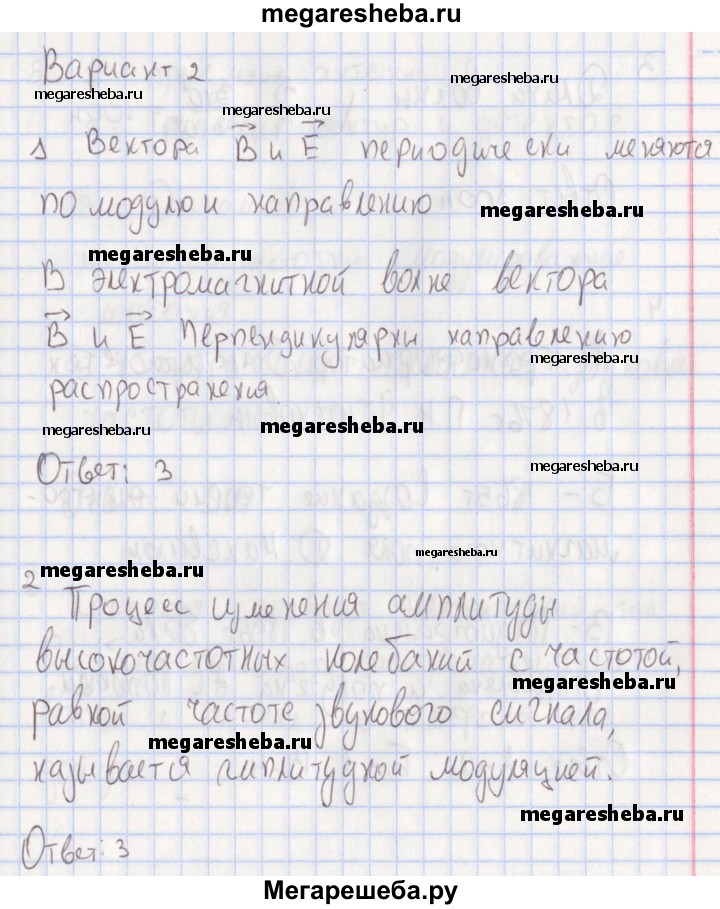 megaresheba.ru
Вариант 2
megaresheba.ru
megaresheba.ru
megaresheba.ru
1 Вектора B и E периодически меняются
по модулю и направлению
megaresheba.ru
megaresheba.ru
В электромагнитной волне вектора
B и E перпендикулярны направлению
megaresheba.ru
распространения.
megaresheba.ru
megaresheba.ru
Ответ: 3
megaresheba.ru
megaresheba.ru
megaresheba.ru
2 Процесс изменения амплитуды
высокочастотных колебаний с частотой,
megaresheba.ru
равной частоте звукового сигнала,
megaresheba.ru
называется амплитудной модуляцией.
megaresheba.ru
Ответ: 3
Мегарешеба.ру